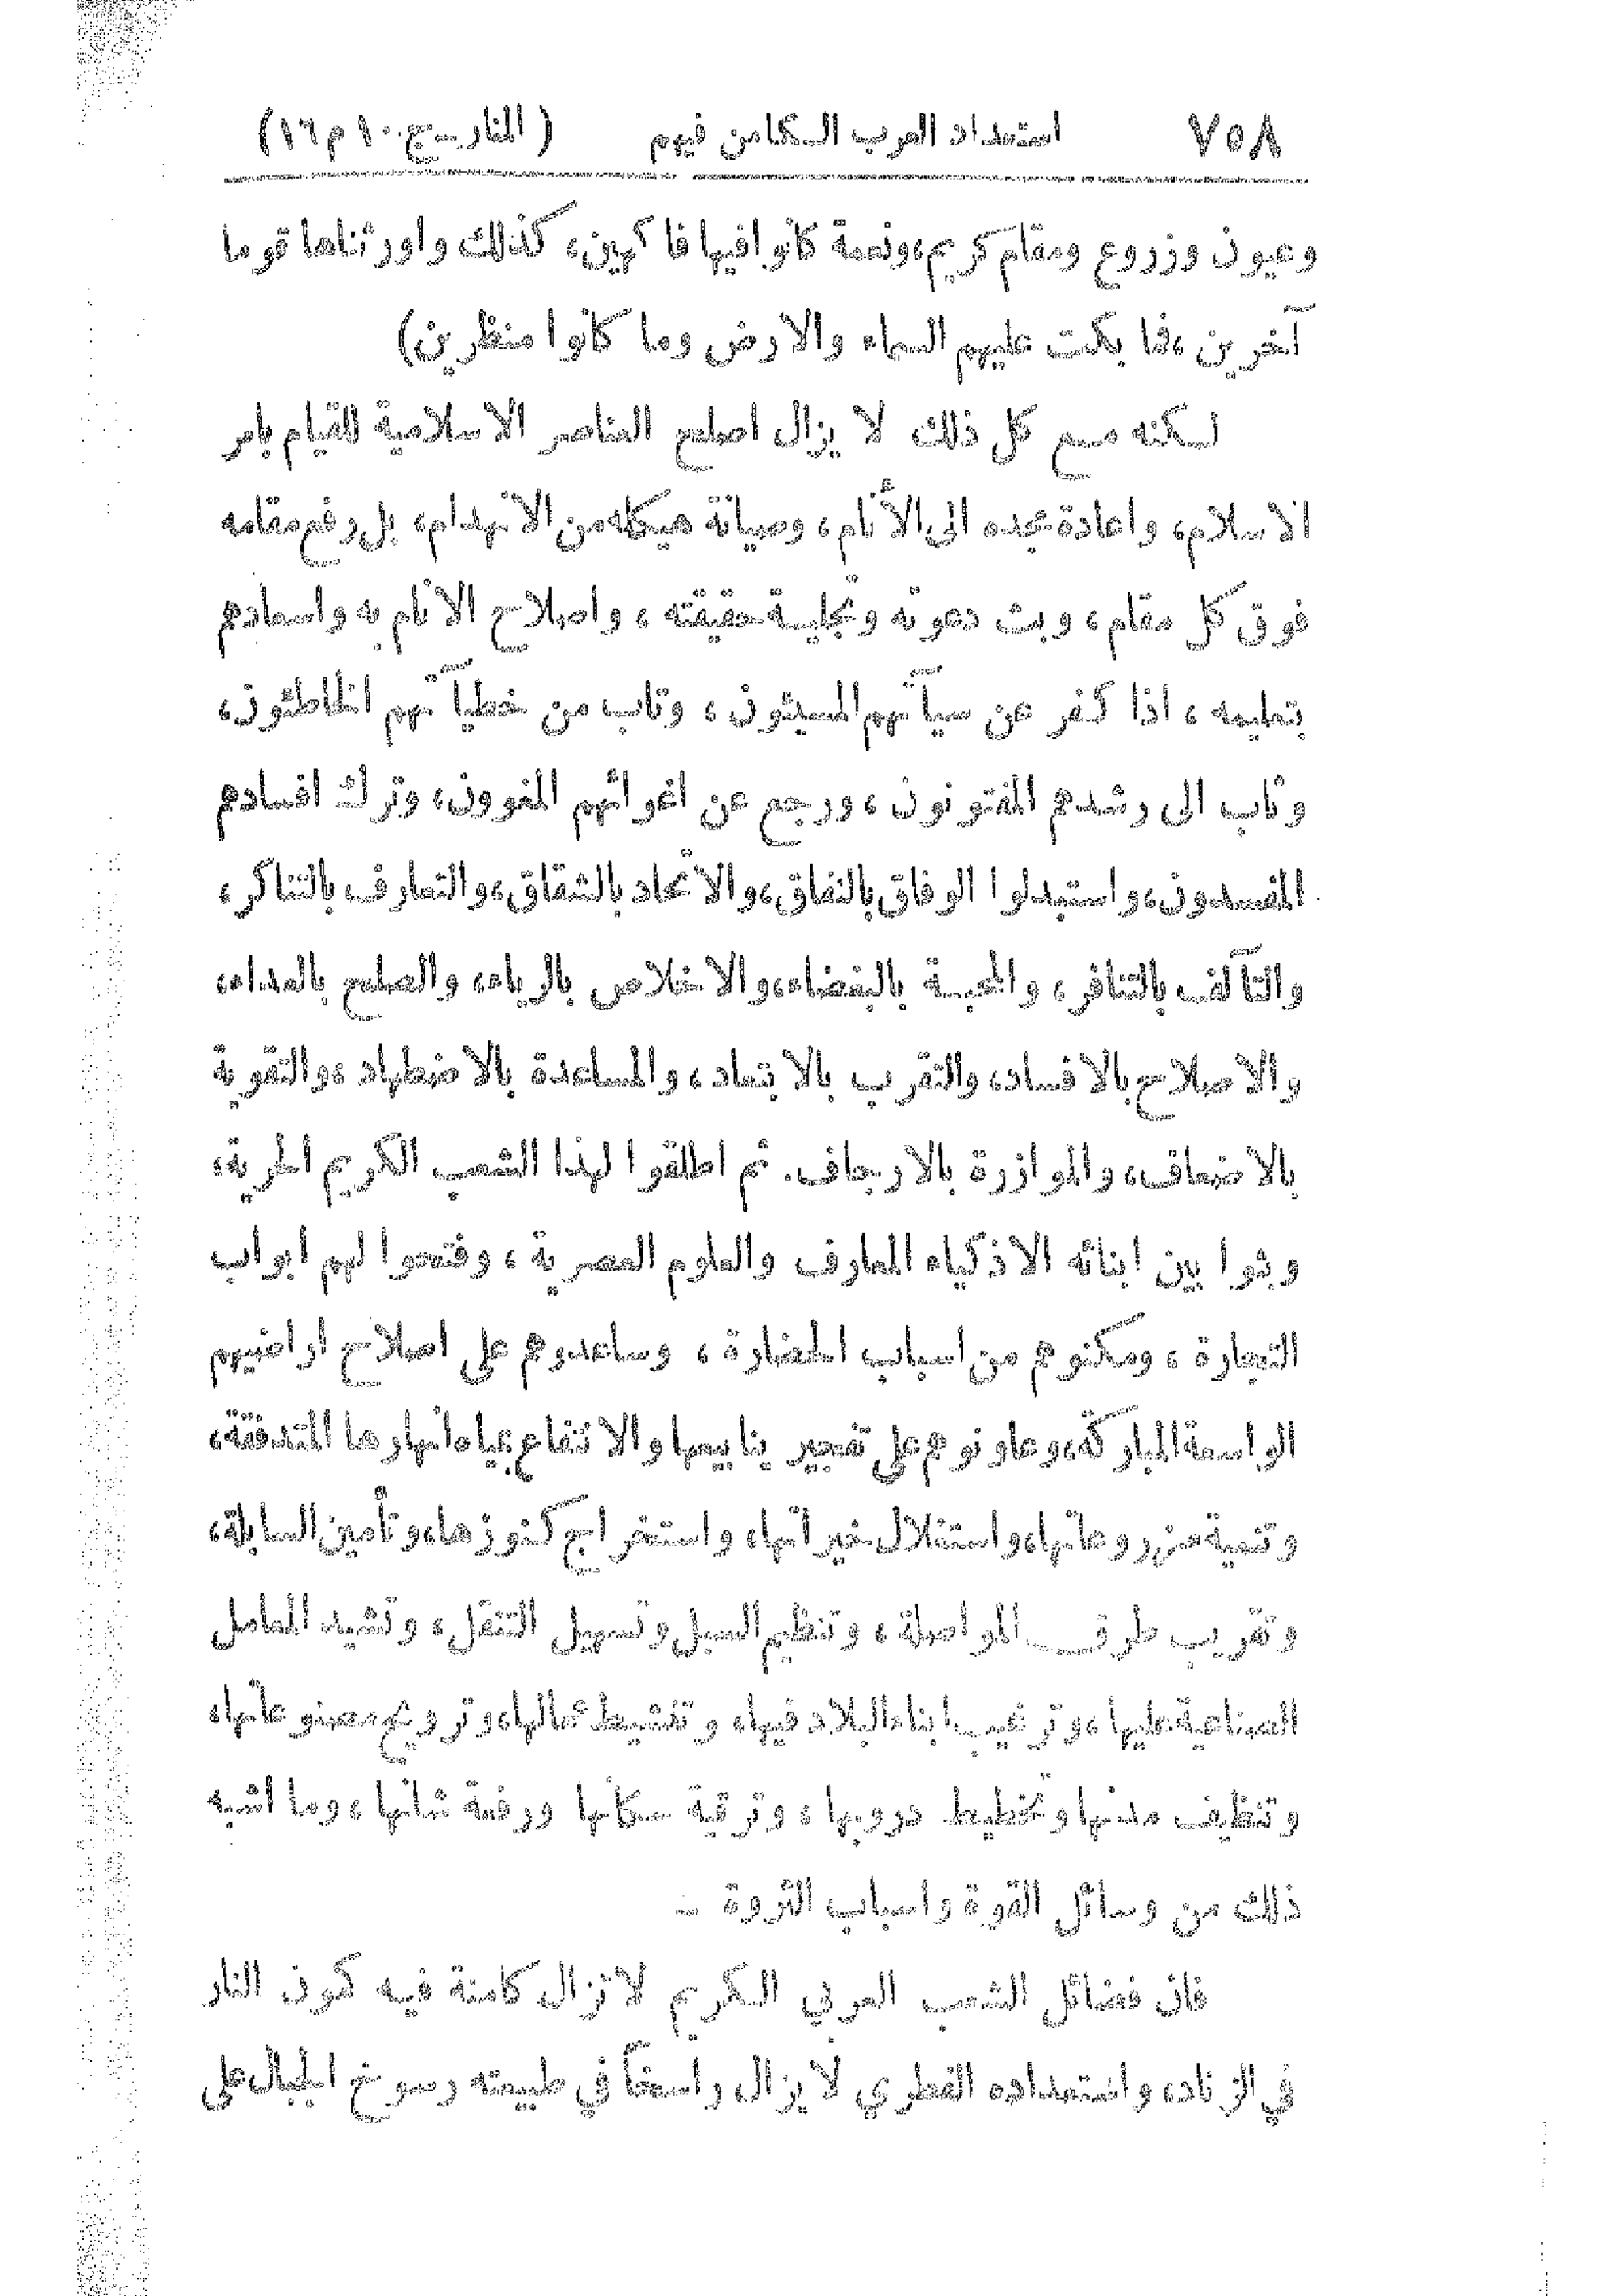 ٧٥٨ استعداد العرب الكامن فيهم ( المنار ــ ج ١٠ م ١٦ )
وعيون وزروع ومقام كريم، ونعمة كانوا فيها فاكهين، كذلك واورثناها قوما
آخرين، فما بكت عليهم السماء والارض وما كانوا منظرين)
لكنه مع كل ذلك لا يزال اصلح العناصر الاسلامية للقيام بامر
الاسلام، واعادة مجده الى الأنام، وصيانة هيكله من الانهدام، بل رفع مقامه
فوق كل مقام، وبث دعوته وتجلية حقيقته، واصلاح الانام به واسعادهم
بتعليمه، اذا كفر عن سيآتهم المسيئون، وتاب من خطيآتهم الخاطئون،
وثاب الى رشدهم المفتونون، ورجع عن اغوائهم المغوون، وترك افسادهم
المفسدون، واستبدلوا الوفاق بالنفاق، والاتحاد بالشقاق، والتعارف بالتناكر،
والتآلف بالتنافر، والمحبة بالبغضاء، والاخلاص بالرياء، والصلح بالعداء،
والاصلاح بالافساد، والتقرب بالابتعاد، والمساعدة بالاضطهاد، والتقوية
بالاضعاف، والموازرة بالارجاف. ثم اطلقوا لهذا الشعب الكريم الحرية،
وبثوا بين ابنائه الاذكياء المعارف والعلوم العصرية، وفتحوا لهم ابواب
التجارة، ومكنوهم من اسباب الحضارة، وساعدوهم على اصلاح اراضيهم
الواسعة المباركة، وعاونوهم على تفجير ينابيعها والانتفاع بمياه انهارها المتدفقة،
وتنمية مزروعاتها، واستغلال خيراتها، واستخراج كنوزها، وتأمين السابلة،
وتقريب طرق المواصلة، وتنظيم السبل وتسهيل التنقل، وتشيد المعامل
الصناعية عليها، وترغيب ابناء البلاد فيها، وتنشيط عمالها، وترويج مصنوعاتها،
وتنظيف مدنها وتخطيط دروبها، وترقية سكانها ورفعة شانها، وما اشبه
ذلك من وسائل القوة واسباب الثروة ــ
فان فضائل الشعب العربي الكريم لا تزال كامنة فيه كمون النار
في الزناد، واستعداده الفطري لا يزال راسخاً في طبيعته رسوخ الجبال على